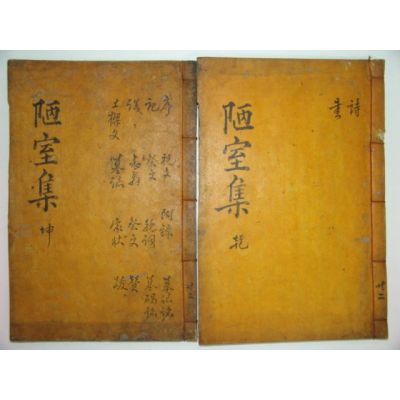 詩
書
陋室集 乾
共二
序 祝文 附錄 墓誌銘
記 祭文 輓詞 墓碣銘
祭文 贊
上樑文 墓誌 家狀 跋
陋室集 坤
共二